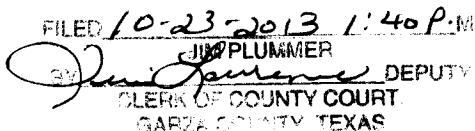 FILED 10-23-2013 1:40 P.M
JIM PLUMMER
BY DEPUTY
CLERK OF COUNTY COURT
GARZA COUNTY, TEXAS